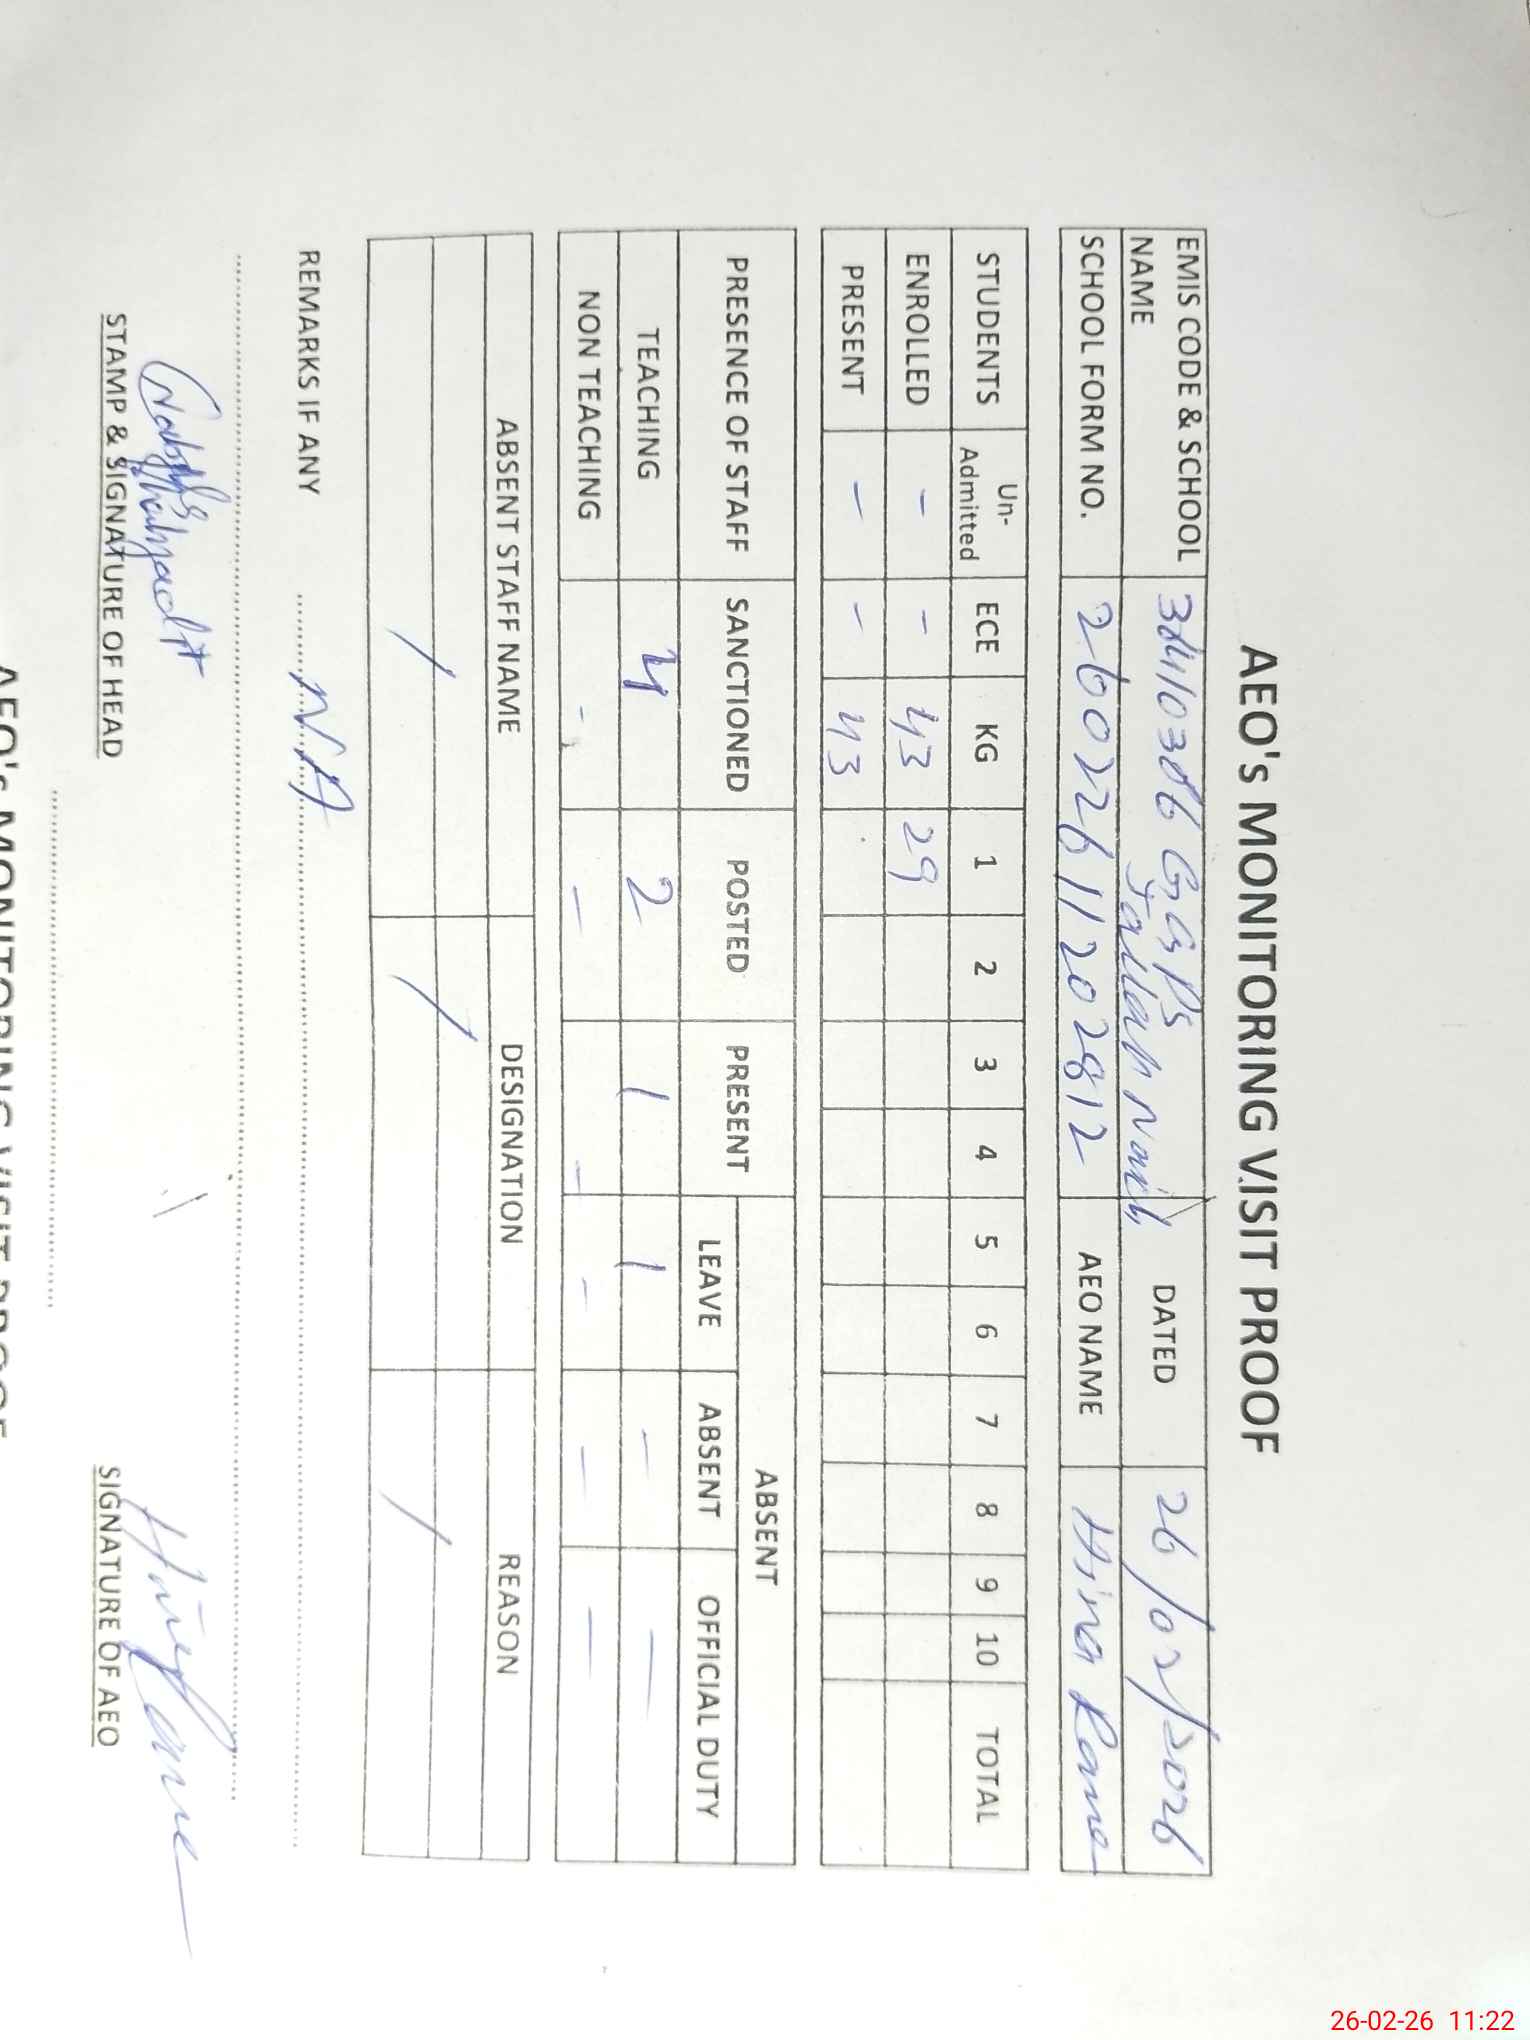 AEO's MONITORING VISIT PROOF
EMIS CODE & SCHOOL NAME 34410386 GGPS DATED 26/02/2026
SCHOOL FORM NO. 26022611202812 AEO NAME Hina Rame
STUDENTS Un-Admitted ECE KG 1 2 3 4 5 6 7 8 9 10 TOTAL
ENROLLED - - 43 29
PRESENT - - 43
PRESENCE OF STAFF SANCTIONED POSTED PRESENT ABSENT
LEAVE ABSENT OFFICIAL DUTY
TEACHING 4 2 1 1 - -
NON TEACHING - - - - - -
ABSENT STAFF NAME DESIGNATION REASON
/ / /
REMARKS IF ANY N.A
STAMP & SIGNATURE OF HEAD SIGNATURE OF AEO
AEO's MONITORING VISIT PROOF
26-02-26 11:22